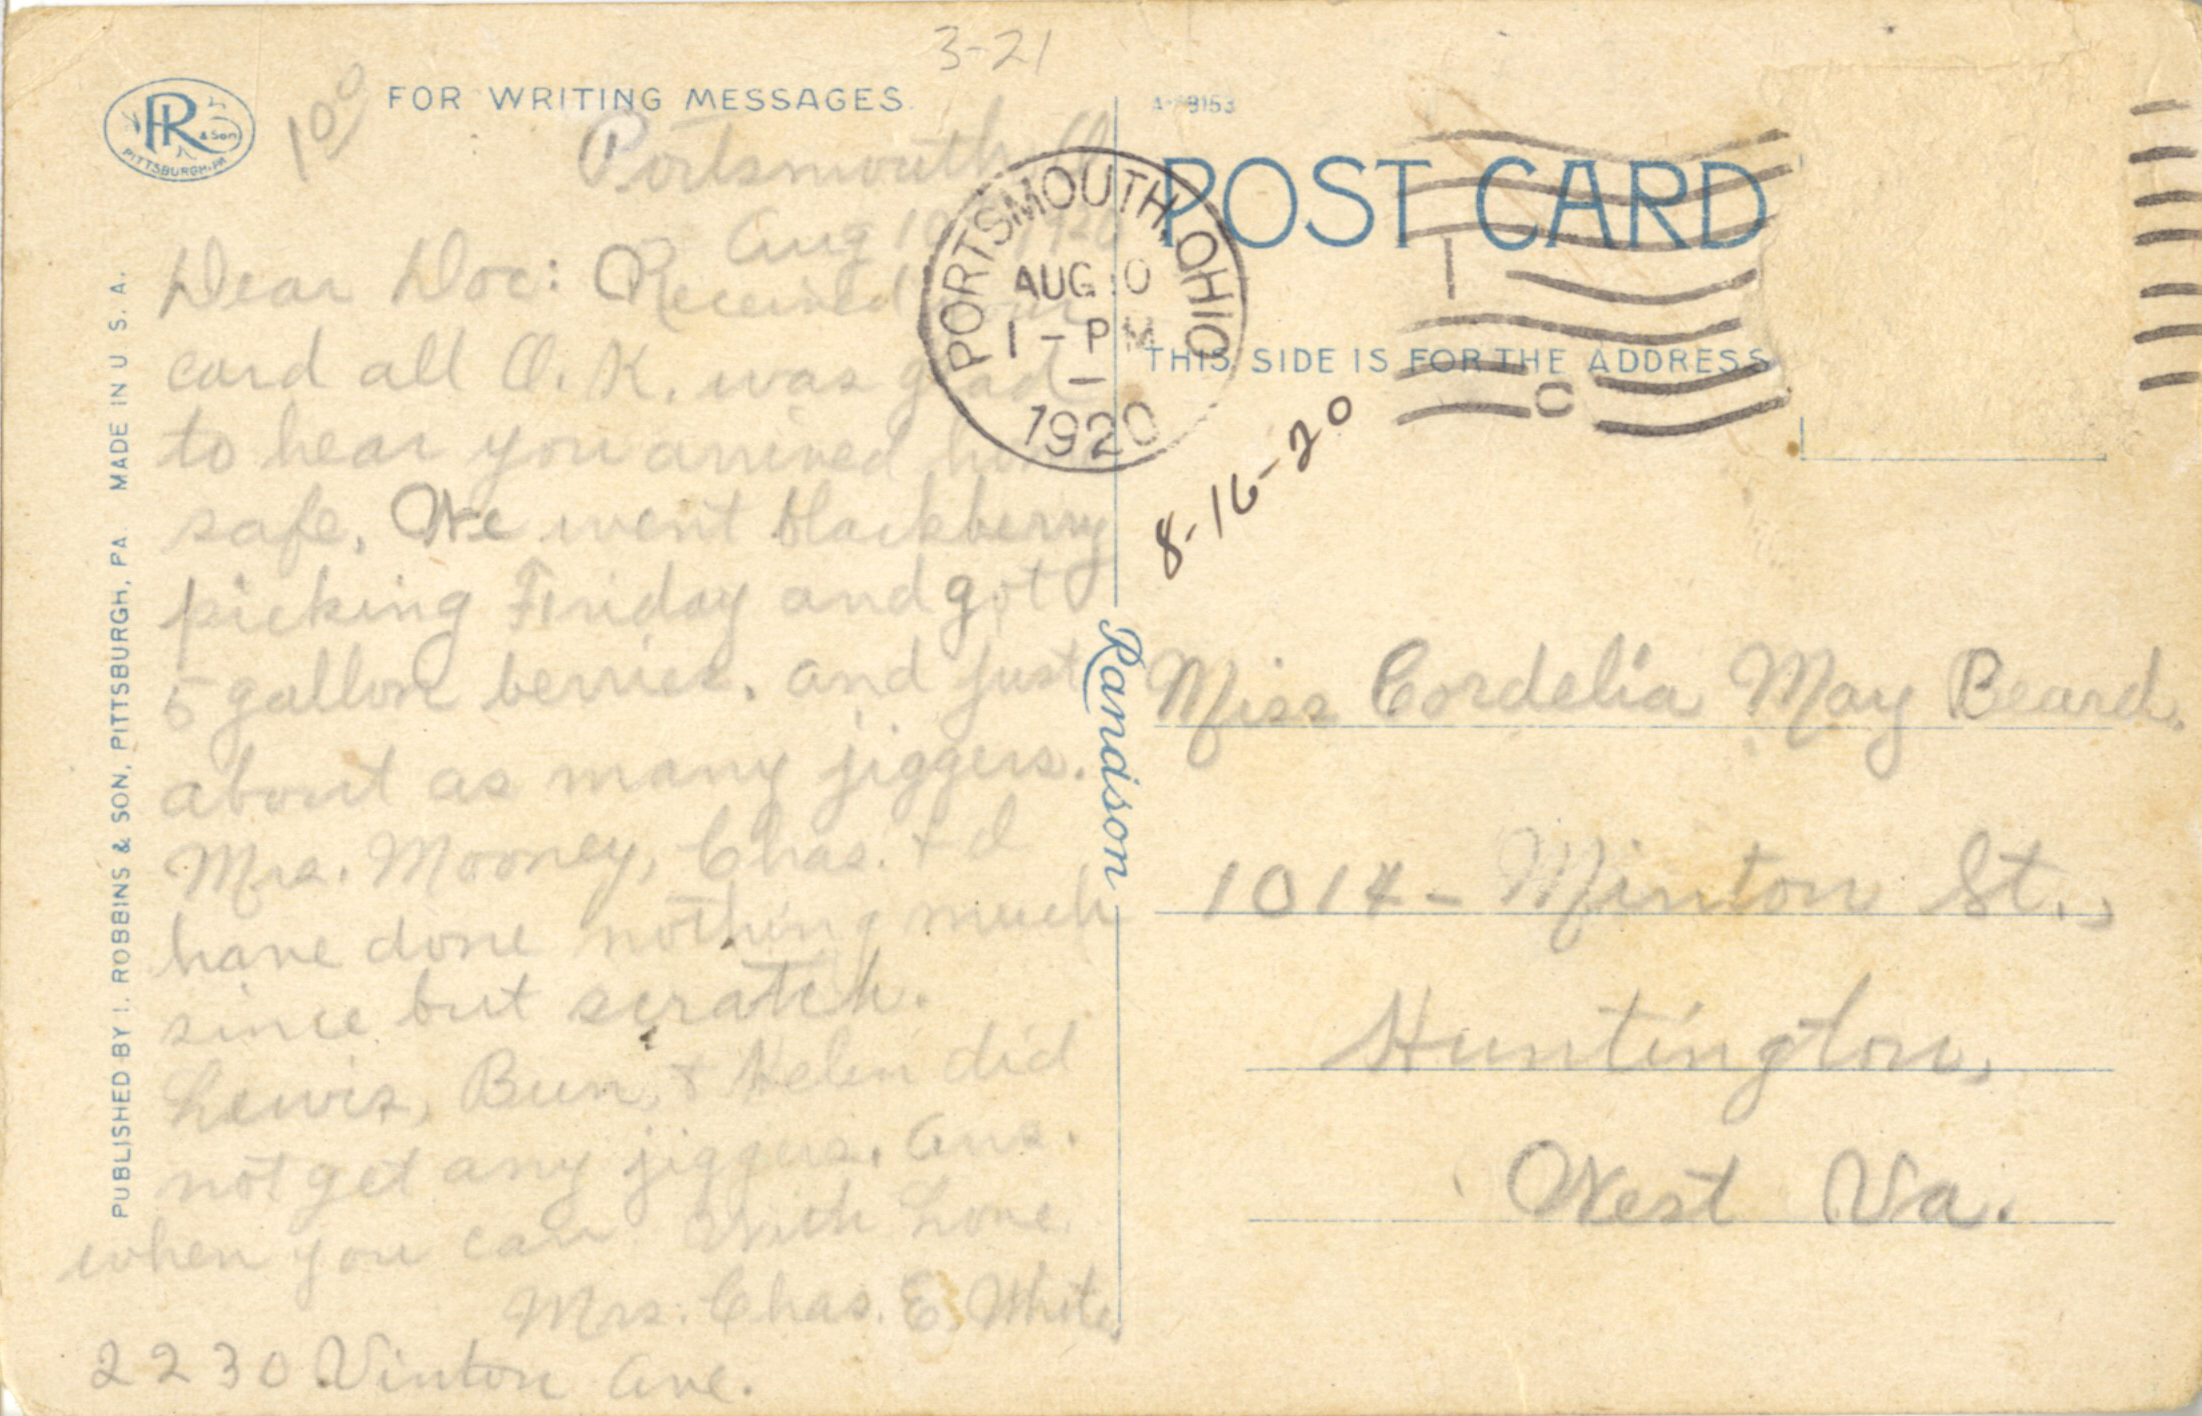 3-21
10⁰⁰
FOR WRITING MESSAGES
HR & Son
PITTSBURGH, PA.
Portsmouth, O
Aug 10 1920
Dear Doc: Received your
card all O.K. was glad
to hear you arrived home
safe. We went blackberry
picking Friday and got
5 gallon berries. and just
about as many jiggers.
Mrs. Mooney, Chas. & I
have done nothing much
since but scratch.
Lewis, Bun, & Helen did
not get any jiggers. Ans.
when you can With Love
Mrs. Chas. E. White
2230 Vinton Ave.
PUBLISHED BY I. ROBBINS & SON, PITTSBURGH, PA. MADE IN U.S.A.
Randison
POST CARD
THIS SIDE IS FOR THE ADDRESS
PORTSMOUTH, OHIO
AUG 10
1 - PM
1920
8-16-20
Miss Cordelia May Beard.
1014 - Minton St.,
Huntington,
West Va.